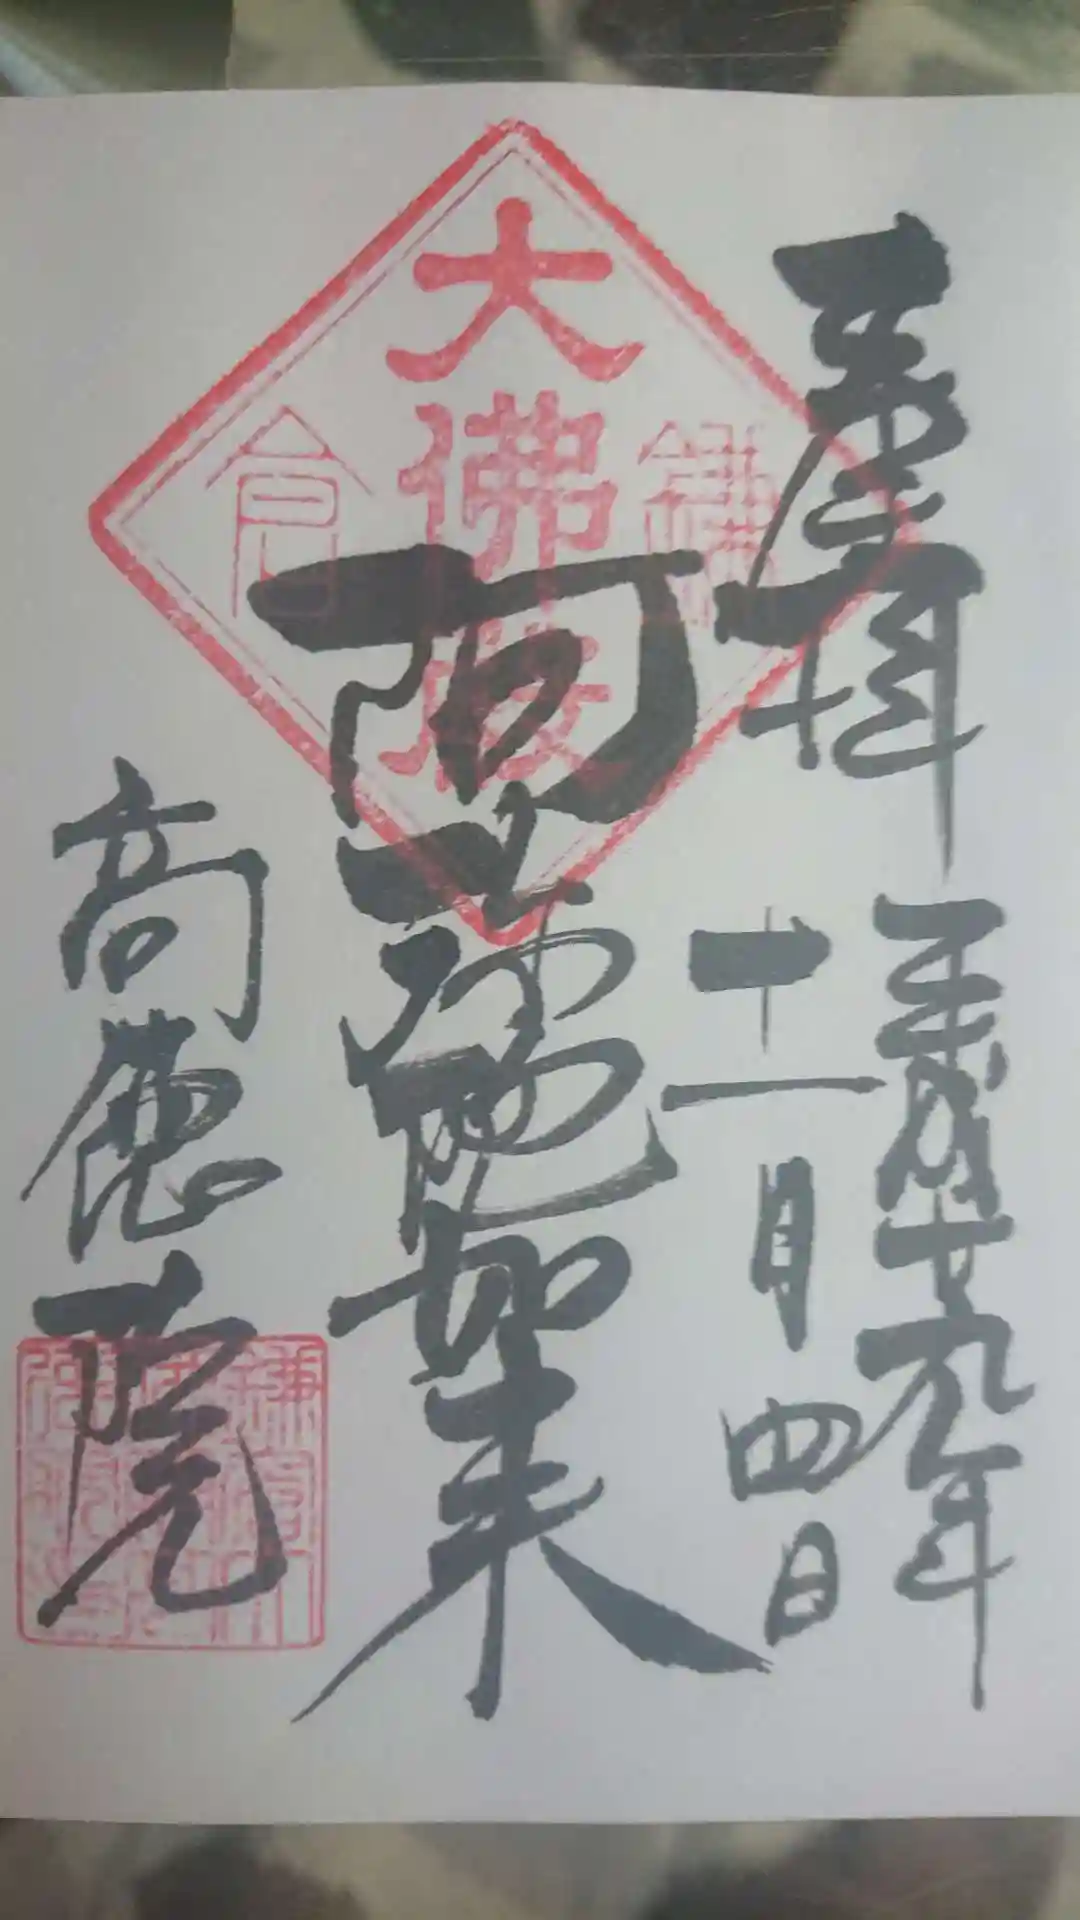 奉拝
平成廿九年
十一月四日
大佛殿
鎌
倉
阿弥陀如来
高徳院